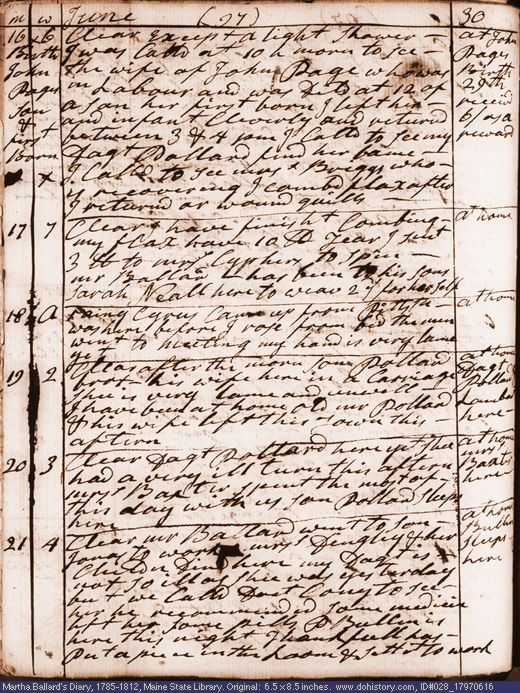 m w June (97) 30
16 6 Clear Except a light Shower at John
Birth I was Calld at 10 h morn to see Pages
John the wife of John Page who was Birth
Pages in Labour and was Dld at 12 of 29th
son a son her first born I left her receivd
& and infant Cleverly and returnd 6/ as a
first between 3 & 4 pm I Calld to see my reward
born Dagt Pollard find her
x I Calld to see mrs Briggs who
is recovering I combd flax after
I returnd or wound quills
17 7 Clear I have finisht Combing at home
my flax have 10 lb Tear I sent
3 lb to mrs Cyphers to spin
mr Ballard has been to his sons
Sarah Neall here to weav 27 for her self
18 A raing Cyrus Came up from at home
was here before I rose from bed the men
went to meeting my hand is very lame
yet
19 2 Clear after the morn son Pollard at home
brot his wife here in a Carriage Dagt
shee is very lame and unwell Pollard
I have been at home old mr Pollard
& his wife left this town this here
aftern
20 3 Clear Dagt Pollard here yet shee at home
had a very ill turn this aftern mrs
mrs Baxter spent the most of Baxter
this day with us son Pollard sleeps here
here
21 4 Clear mr Ballard went to son at home
Jonas to work mrs Dingley & her
Children Dind here my Dagt is sleeps
not so ill as shee was yesterday here
but we Calld Doct Cony to see
her he recommended some medicin
left her some pills
here this night I
Put a piece in the Loom & sett it to work
Martha Ballard's Diary, 1785-1812, Maine State Library. Original: 6.5 x 8.5 inches. www.dohistory.com, ID#028_17970616